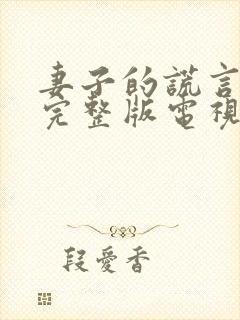 妻子的謊言
完整版電視
段愛香